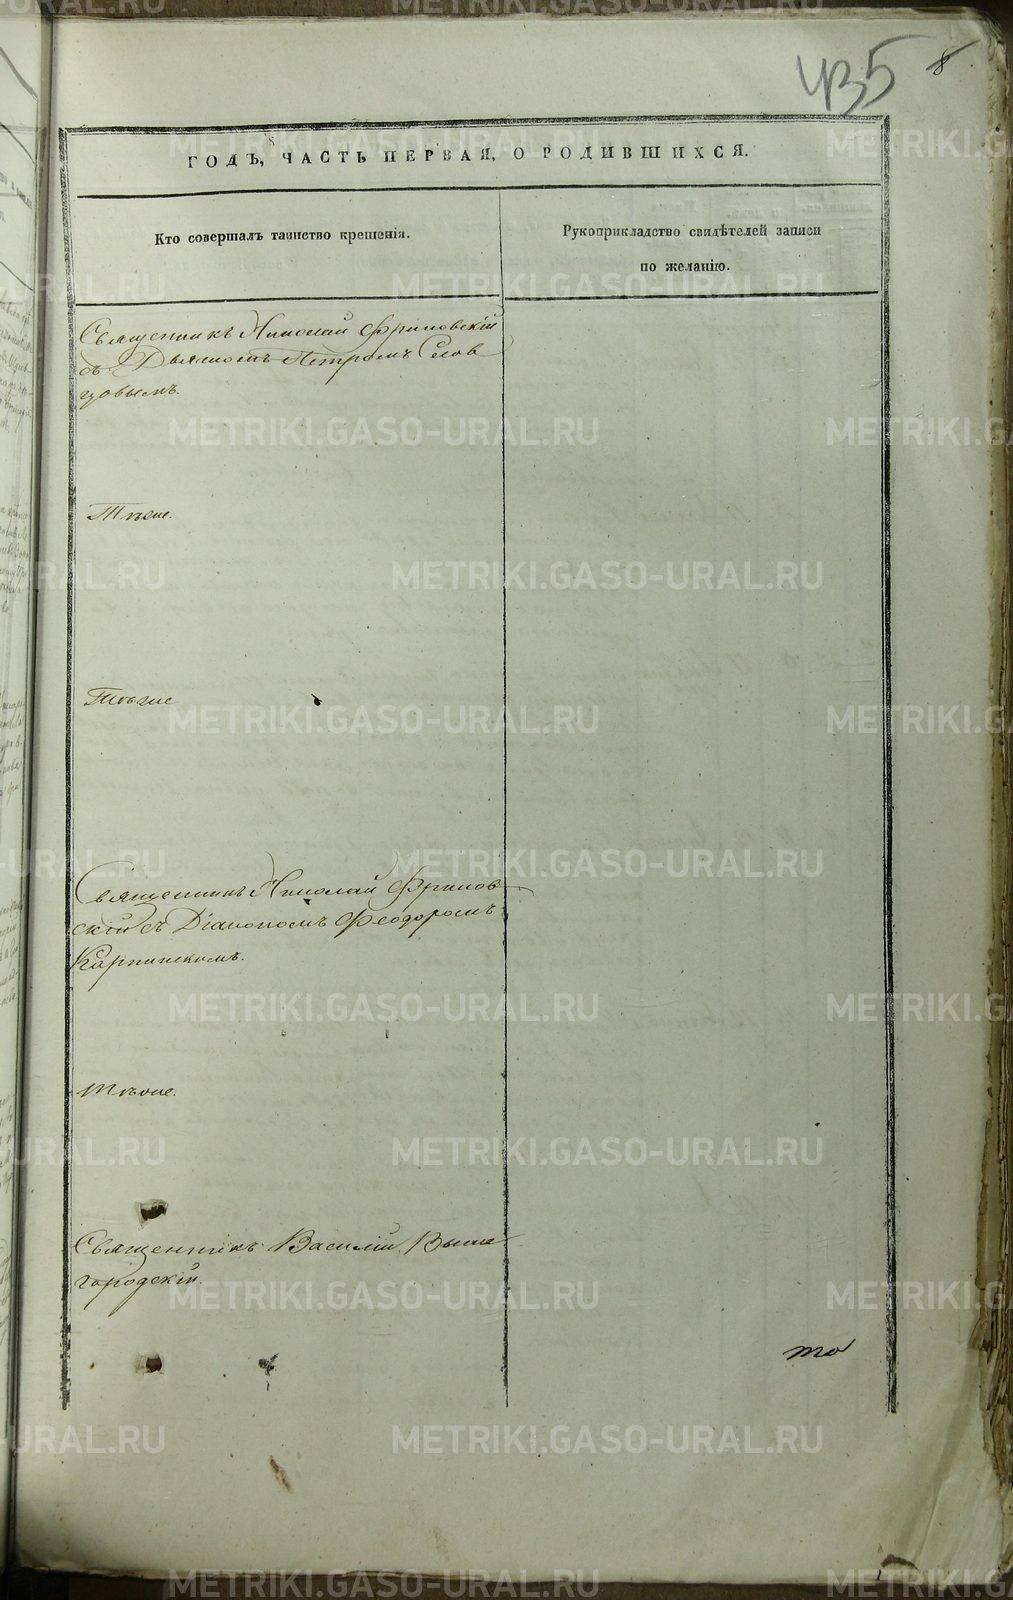 435 8
ГОДЪ, ЧАСТЬ ПЕРВАЯ, О РОДИВШИХСЯ.
Кто совершалъ таинство крещенія.
Рукоприкладство свидѣтелей записи
по желанію.
Священникъ Николай Фриновскій
съ Дьякомъ Петромъ Слов
цовымъ.
Тѣже.
Тѣже
Священникъ Николай Фринов
скій съ Діакономъ Феодоромъ
Карпинскомъ.
Тѣже.
Священникъ Василій Выше
городскій.
то
METRIKI.GASO-URAL.RU